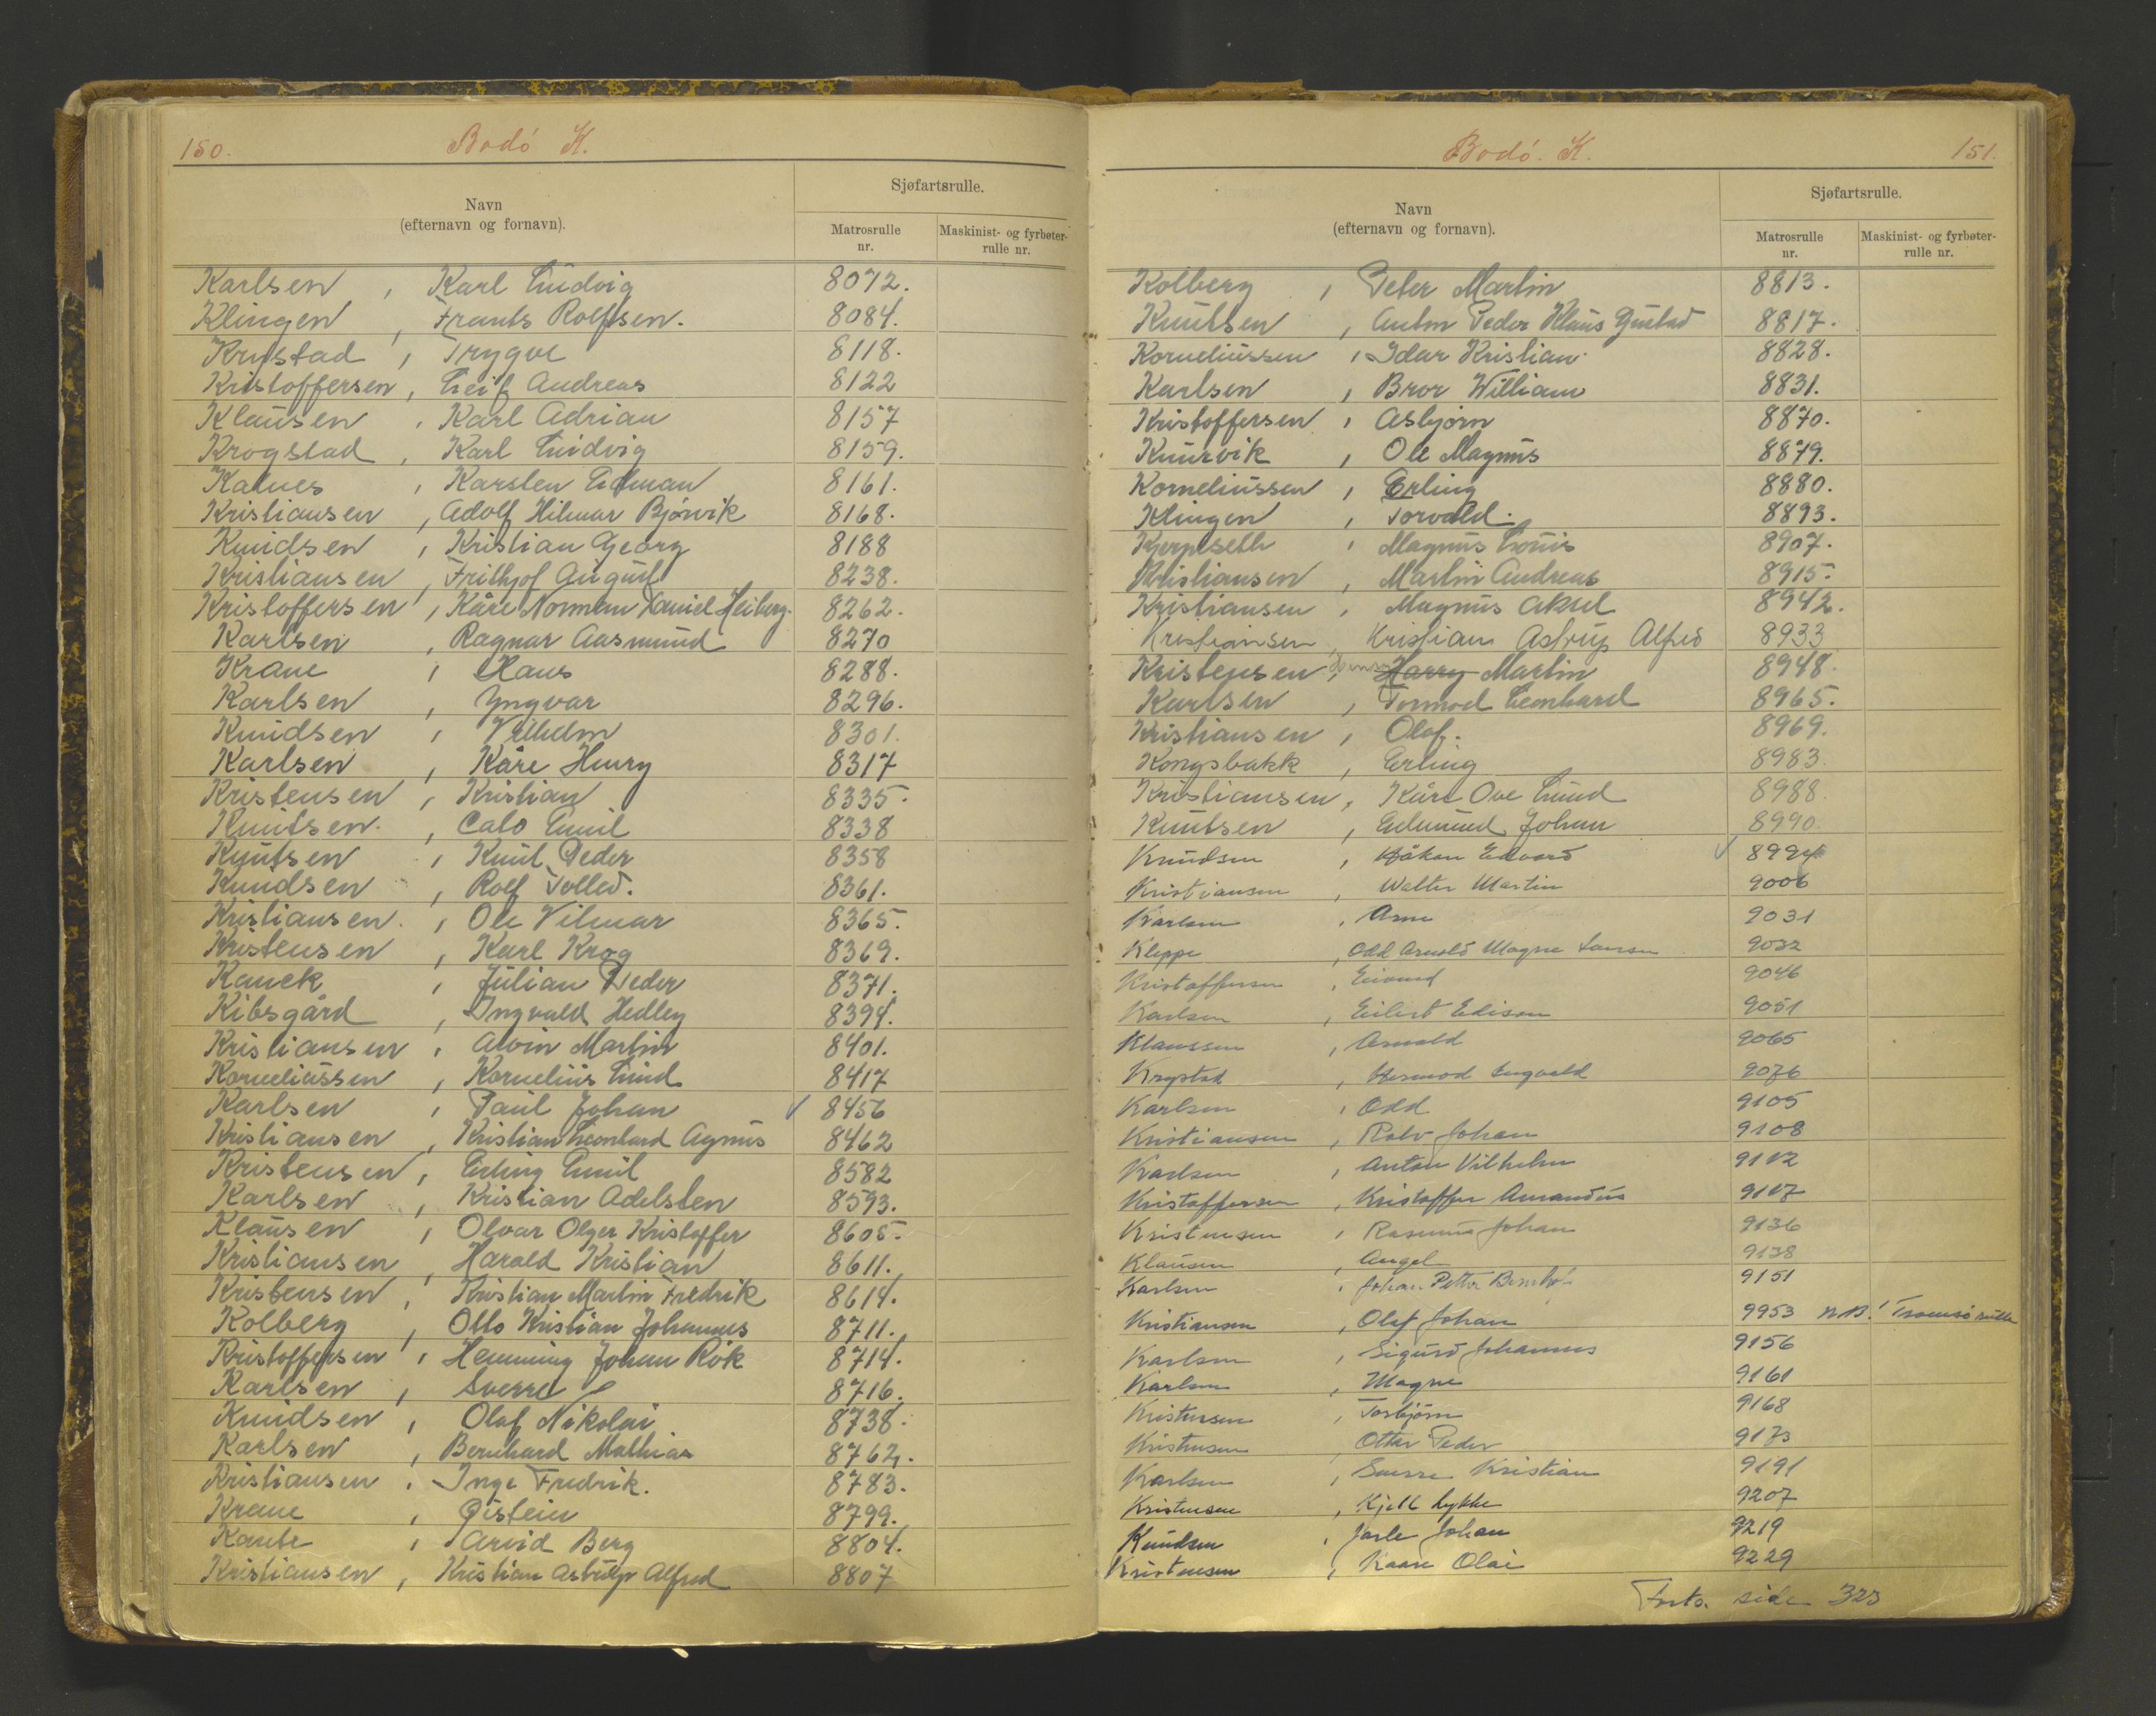 150.
Bodó K.
Navn
(efternavn og fornavn).
Sjøfartsrulle.
Matrosrulle nr.
Maskinist- og fyrbøter-rulle nr.
Karlsen, Karl Ludvig 8072.
Klingen, Frants Rolfsen. 8084.
Krystad, Trygve 8118.
Kristoffersen, Leif Andreas 8122
Klausen, Karl Adrian 8157
Krogstad, Karl Ludvig 8159.
Kalnes, Karsten Edman 8161.
Kristiansen, Adolf Hilmar Bjórvik 8168.
Knudsen, Kristian Georg 8188
Kristiansen, Frithjof August 8238.
Kristoffersen, Kåre Norman Daniel Heiberg. 8262.
Karlsen, Ragnar Aasmund 8270
Krane, Hans 8288.
Karlsen, Yngvar 8296.
Knudsen, Vilhelm 8301.
Karlsen, Kåre Henry 8317
Kristensen, Kristian 8335.
Knutsen, Calo Emil 8338
Knutsen, Knut Peder 8358
Knudsen, Rolf Tollef. 8361.
Kristiansen, Ole Vilmar 8365.
Kristensen, Karl Krog 8369.
Kanck, Julian Peder 8371.
Kibsgård, Ingvald Hedley 8394.
Kristiansen, Alvin Martin 8401.
Korneliussen, Kornelius Lund 8417
Karlsen, Paul Johan ✓ 8456
Kristiansen, Kristian Leonhard Agnus 8462
Kristensen, Erling Emil 8582
Karlsen, Kristian Adelsten 8593.
Klausen, Olvar Olger Kristoffer 8605.
Kristiansen, Harald Kristian 8611.
Kristensen, Kristian Martin Fredrik 8614.
Kolberg, Otto Kristian Johannes 8711.
Kristoffersen, Hemming Johan Rök 8714.
Karlsen, Sverre 8716.
Knudsen, Olaf Nikolai 8738.
Karlsen, Bernhard Mathias 8762.
Kristiansen, Inge Fredrik. 8783.
Krane, Øistein 8799.
Kante, Arvid Berg 8804.
Kristiansen, Kristian Astrup Alfred 8807
Bodó. K.
151.
Navn
(efternavn og fornavn).
Sjøfartsrulle.
Matrosrulle nr.
Maskinist- og fyrbøter-rulle nr.
Kolberg, Peter Martin 8813.
Knutsen, Anton Peder Klaus Gustad 8817.
Korneliussen, Idar Kristian 8828.
Karlsen, Bror William 8831.
Kristoffersen, Asbjörn 8870.
Knurvik, Ole Magnus 8879.
Korneliussen, Erling 8880.
Klingen, Torvald. 8893.
Kjerpeseth, Magnus Louis 8907.
Kristiansen, Martin Andreas 8915.
Kristiansen, Magnus Aksel 8942.
Kristiansen, Kristian Astrup Alfred 8933
Kristensen, Harry Martin 8948.
Karlsen, Tormod Leonhard 8965.
Kristiansen, Olaf. 8969.
Kongsbakk, Erling 8983.
Kristiansen, Kåre Ove Lund 8988.
Knutsen, Edmund Johan 8990.
Knudsen, Håkon Edvard ✓ 8994
Kristiansen, Walter Martin 9006
Karlsen, Arne 9031
Kleppe, Odd Arnold Magne Larsen 9032
Kristoffersen, Eivind 9046
Karlsen, Eilert Edison 9051
Klaussen, Arnold 9065
Krystad, Hermod Ingvald 9076
Karlsen, Odd 9105
Kristiansen, Rolv Johan 9108
Karlsen, Anton Vilhelm 9112
Kristoffersen, Kristoffer Amandus 9117
Kristensen, Rasmus Johan 9136
Klausen, Angel 9138
Karlsen, Johan Petter 9151
Kristiansen, Olaf Johan 9953 N.B! Tromsö rulle
Karlsen, Sigurd Johannes 9156
Karlsen, Magne 9161
Kristensen, Torbjörn 9168
Kristensen, Ottar Peder 9173
Karlsen, Sverre Kristian 9191
Kristensen, Kjell Lykke 9207
Knudsen, Jarle Johan 9219
Kristensen, Kaare Olai 9229
Forts. side 323